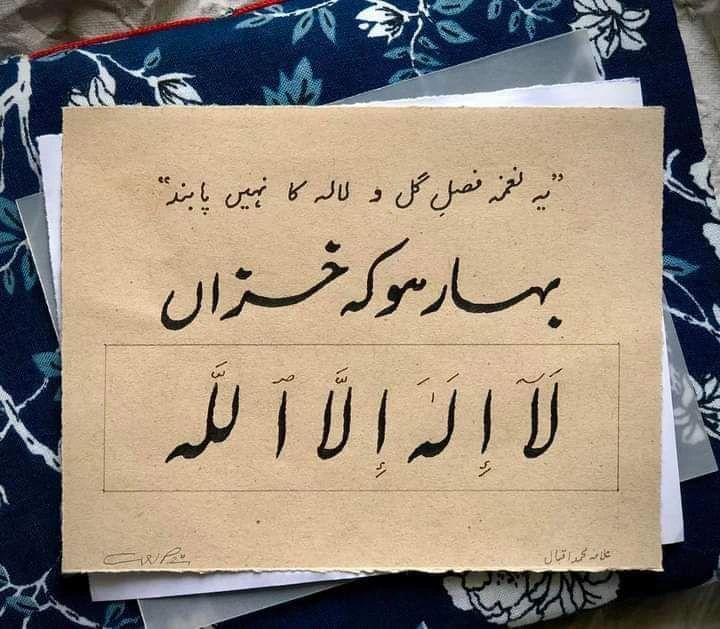 ”یہ نغمہ فصلِ گل و لالہ کا نہیں پابند“
بہار ہو کہ خزاں
لَآ إِلَٰهَ إِلَّا ٱللَّه
علامہ محمد اقبال